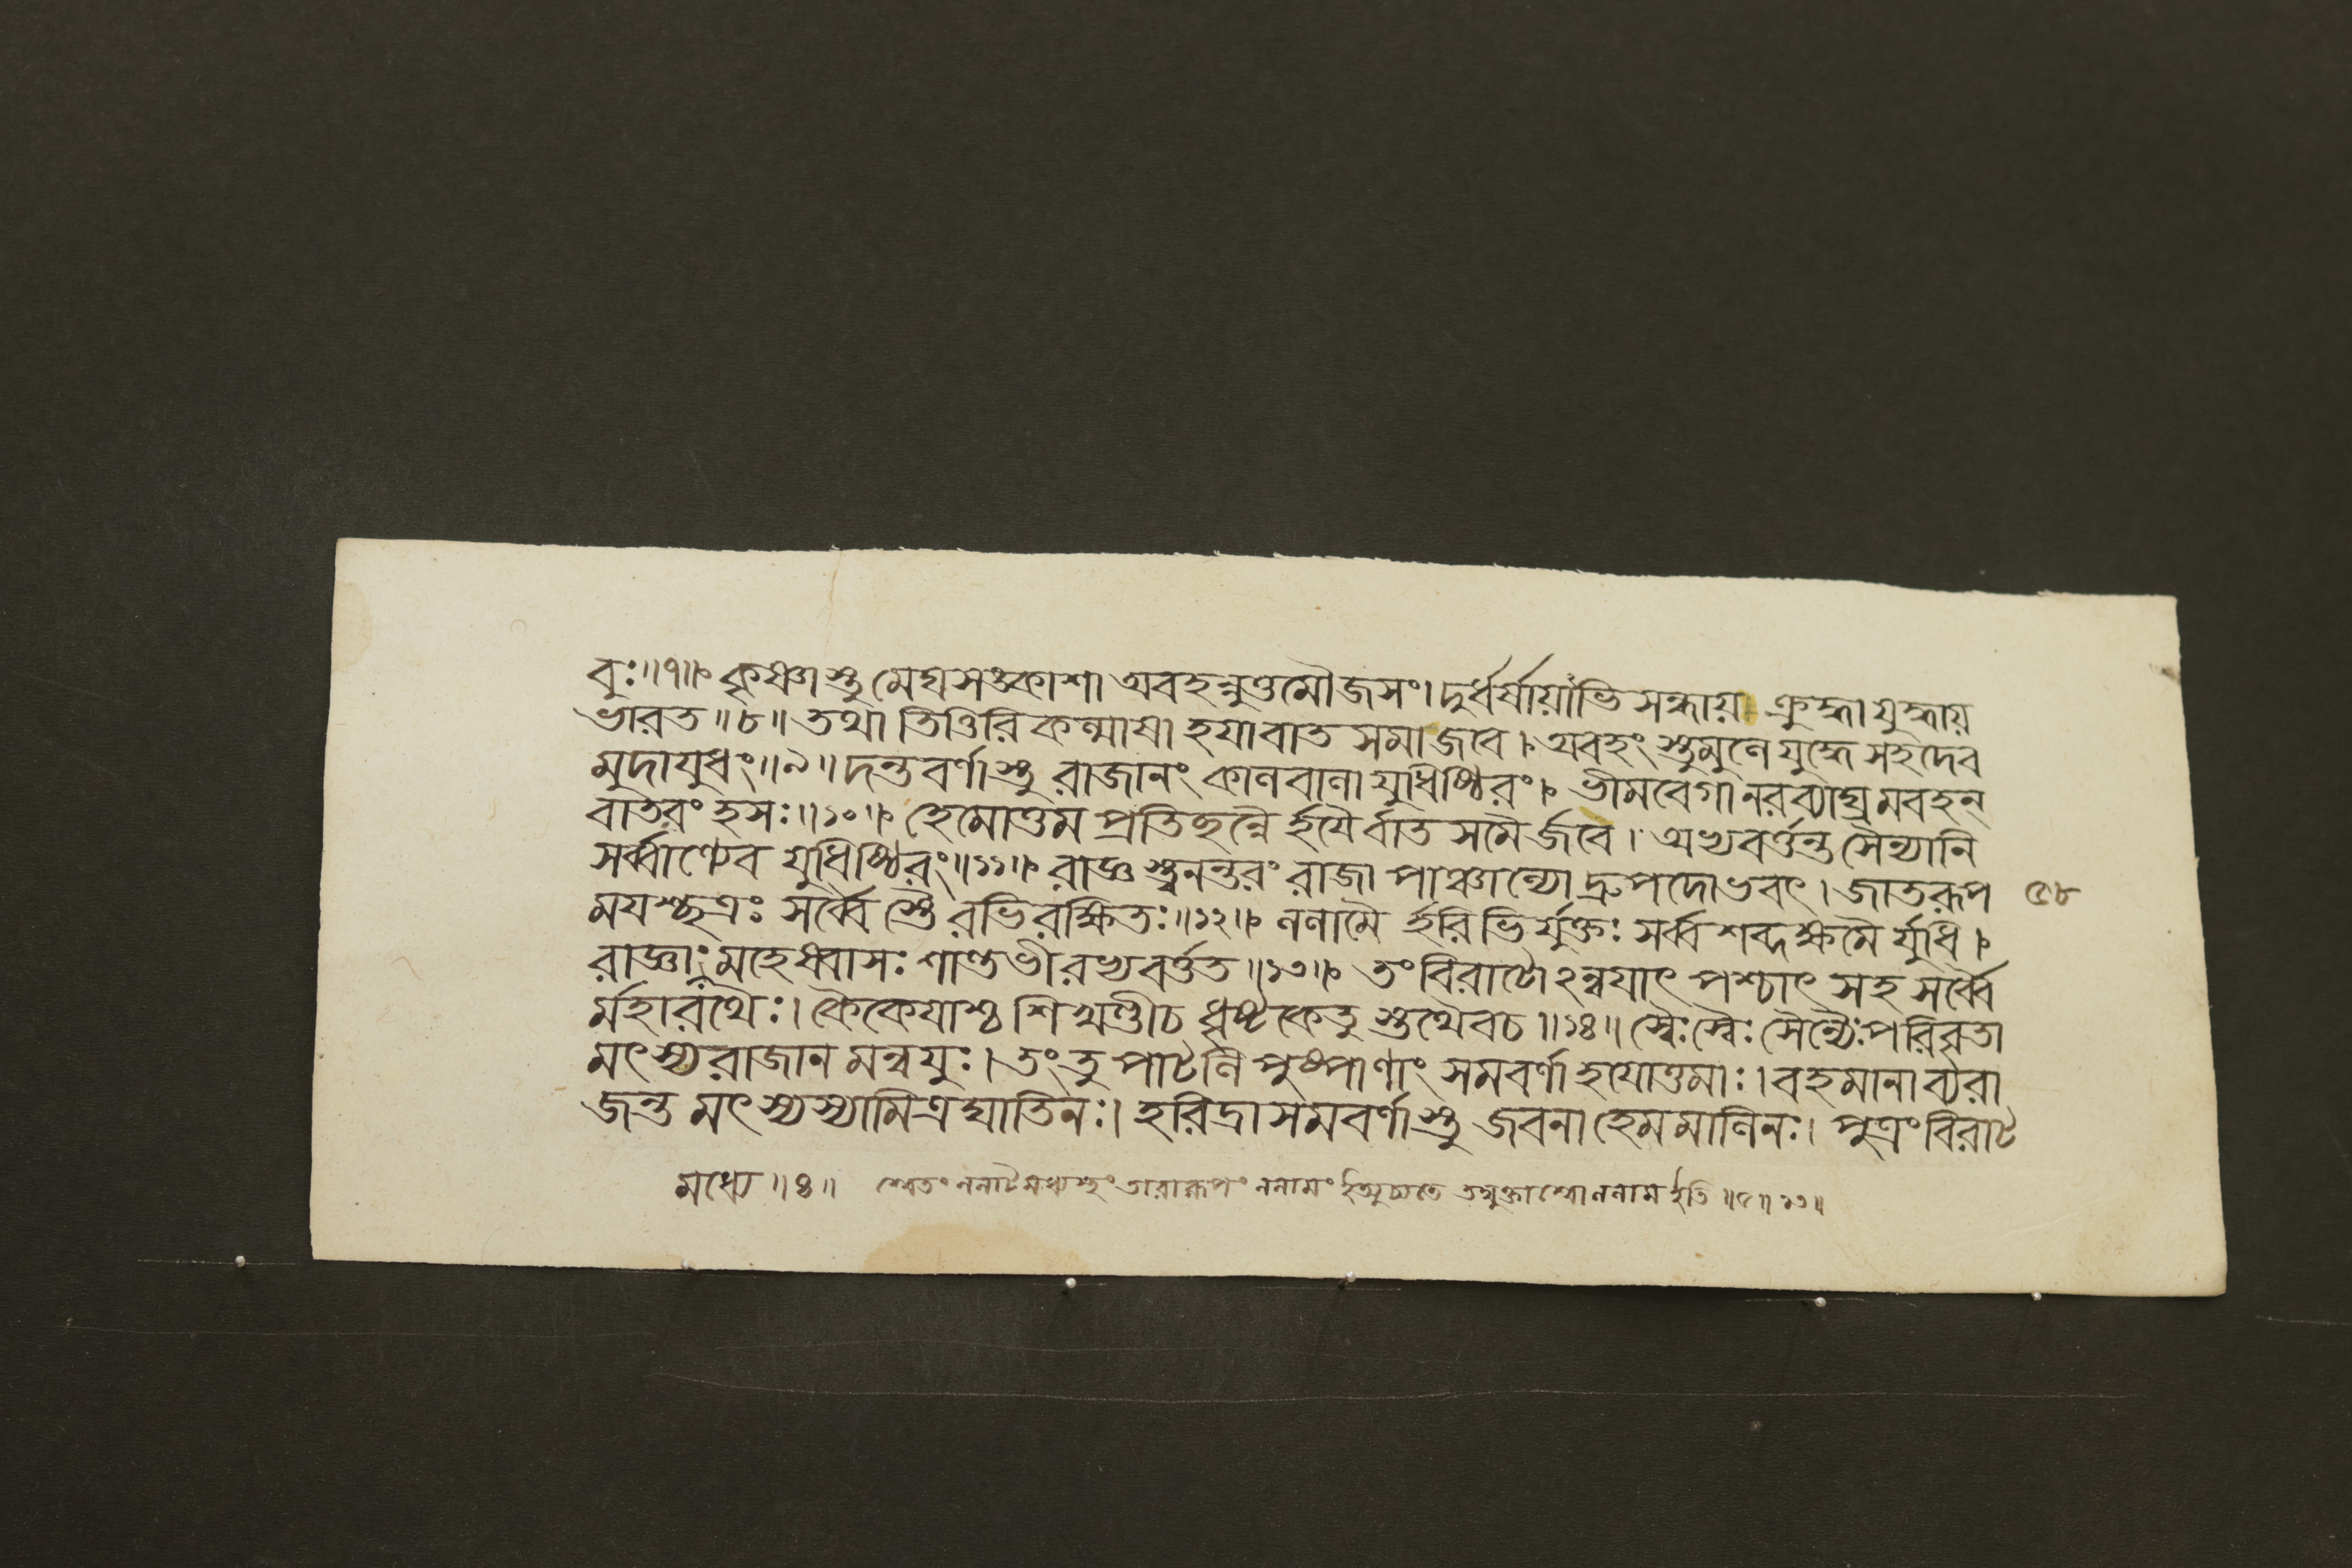 বুঃ॥৭॥ কৃষ্ণাস্তু মেঘসঙ্কাশা অবহন্নুত্তমৌজসং। দুর্ধর্ষায়াভি সন্ধায় ক্রুদ্ধা যুদ্ধায়
ভারত॥৮॥ তথা তিত্তিরি কল্মাষা হযাবাত সমাজবে। অবহং স্তুমুলে যুদ্ধে সহদেব
মুদাযুধং॥৯॥ দন্তবর্ণাস্তু রাজানং কালবালা যুধিষ্ঠিরং। ভীমবেগা নরব্যাঘ্র মবহন্
বাতরং হসঃ॥১০॥ হেমোত্তম প্রতিছন্নৈ র্হযৈর্বাত সমৈর্জবে। অভ্যবর্ত্তন্ত সৈন্যানি
সর্ব্বাণ্যেব যুধিষ্ঠিরং॥১১॥ রাজ্ঞ স্ত্বনন্তরং রাজা পাঞ্চাল্যো দ্রুপদোভবৎ। জাতরূপ
৫৮
মযশ্ছত্রঃ সর্ব্বৈ স্তৈ রভিরক্ষিতঃ॥১২॥ ললামৈ র্হরিভি র্যুক্তঃ সর্ব্বশব্দক্ষমৈ র্যুধি।
রাজ্ঞাং মহেষ্বাসঃ শান্তভী রভ্যবর্ত্তত॥১৩॥ তং বিরাটোঽন্বযাৎ পশ্চাৎ সহ সর্ব্বৈ
র্মহারথৈঃ। কৈকেযাশ্চ শিখণ্ডীচ ধৃষ্টকেতু স্তথৈবচ॥১৪॥ স্বৈঃ স্বৈঃ সৈন্যৈঃ পরিবৃতা
মৎস্যরাজান মন্বযুঃ। তং তু পাটলি পুষ্পাণাং সমবর্ণা হযোত্তমাঃ। বহমানা ব্যরা
জন্ত মৎস্যস্যামিত্রঘাতিনঃ। হরিদ্রা সমবর্ণাস্তু জবনা হেমমালিনঃ। পুত্রং বিরাট
মধ্যে॥৪॥ শ্বেতং ললাটমধ্যস্থং তারারূপং ললামং ইত্যুচ্যতে তদ্যুক্তাশ্বো ললাম ইতি॥৫॥১৩॥